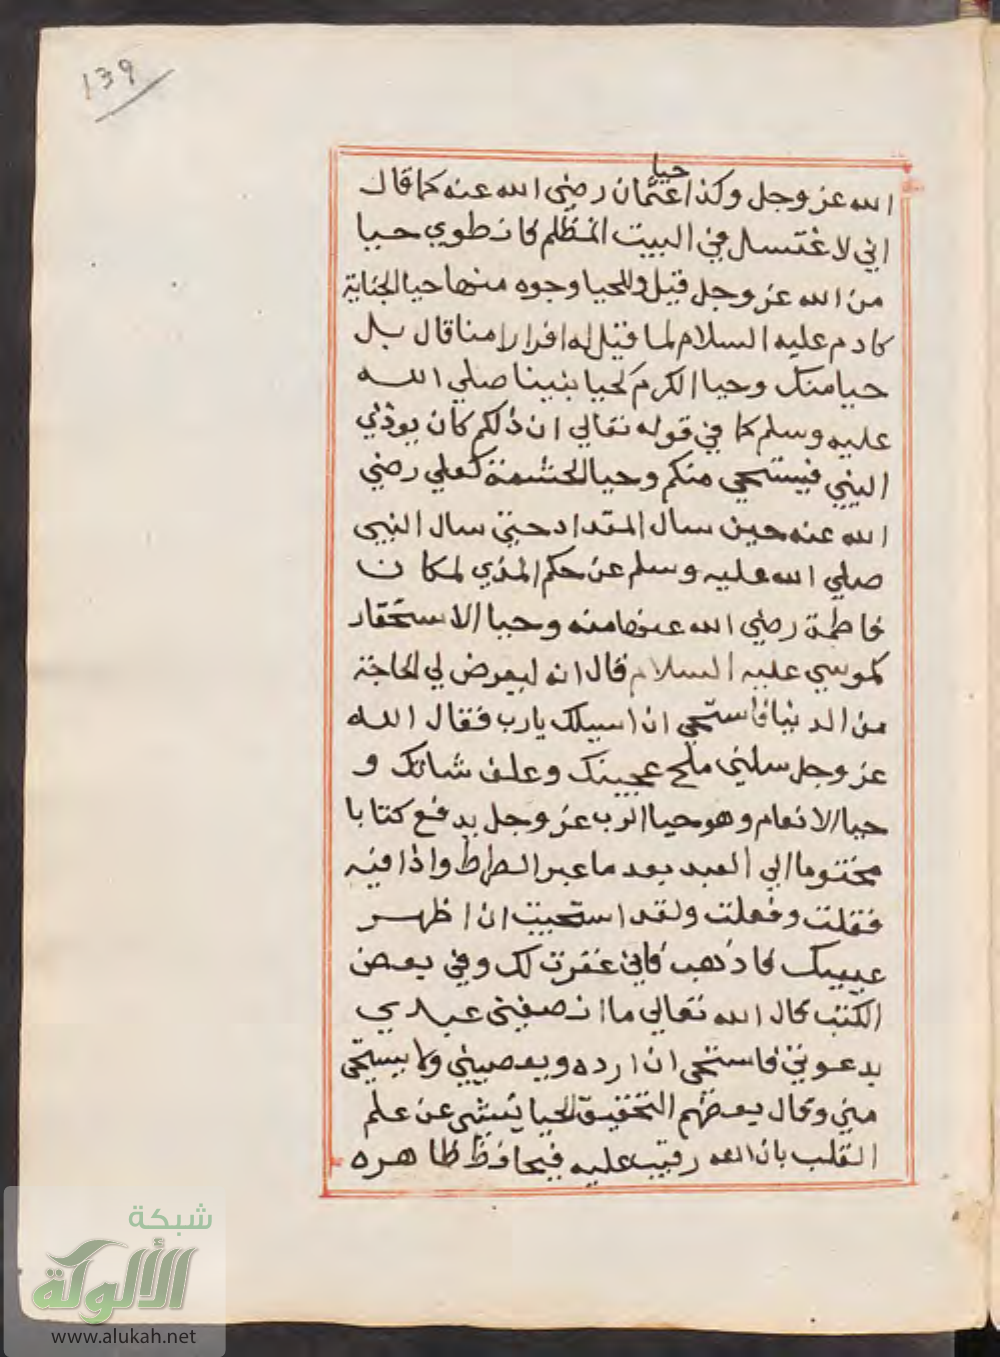 139
حيا
الله عز وجل وكذا عثمان رضي الله عنه كما قال
اني لاغتسل في البيت المظلم فانطوي حيا
من الله عز وجل قيل وللحيا وجوه منها حيا الجناية
كادم عليه السلام لما قيل له افرارا منا قال بل
حيا منك وحيا الكرم كحيا نبينا صلي الله
عليه وسلم كما في قوله تعالي ان ذلكم كان يوذي
النبي فيستحي منكم وحيا الحشمة كعلي رضي
الله عنه حين سال المقداد حتي سال النبي
صلي الله عليه وسلم عن حكم المذي لمكان
فاطمة رضي الله عنها منه وحيا الاستحقار
كموسي عليه السلام قال انه ليعرض لي الحاجة
من الدنيا فاستحي ان اسيلك يا رب فقال الله
عز وجل سلني ملح عجينك وعلف شاتك و
حيا الانعام وهو حيا الرب عز وجل يدفع كتابا
مختوما الي العبد بعد ما عبر الصراط واذا فيه
فعلت وفعلت ولقد استحييت ان اظهر
عيبك فاذهب فاني غفرت لك وفي بعض
الكتب قال الله تعالي ما انصفني عبدي
يدعوني فاستحي ان ارده ويعصيني ولا يستحي
مني وقال بعضهم التحقيق الحيا ينشي عن علم
القلب بان الله رقيب عليه فيحافظ ظاهره
شبكة
الألوكة
www.alukah.net